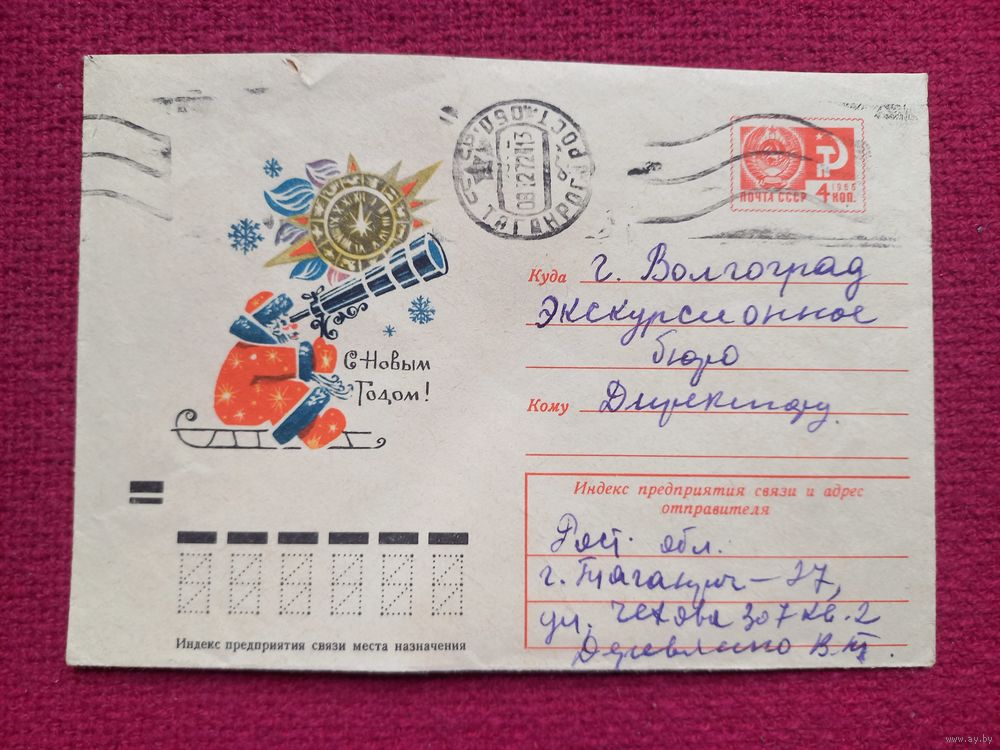 ТАГАНРОГ РОСТ. ОБЛ.
08 12 72 13
ПОЧТА СССР
1966
4 КОП.
С Новым
Годом!
Куда г. Волгоград
Экскурсионное
бюро
Кому Директору
Индекс предприятия связи и адрес
отправителя
Рост. обл.
г. Таганрог - 27,
ул. Чехова 307 кв. 2
В. Т.
Индекс предприятия связи места назначения
www.ay.by